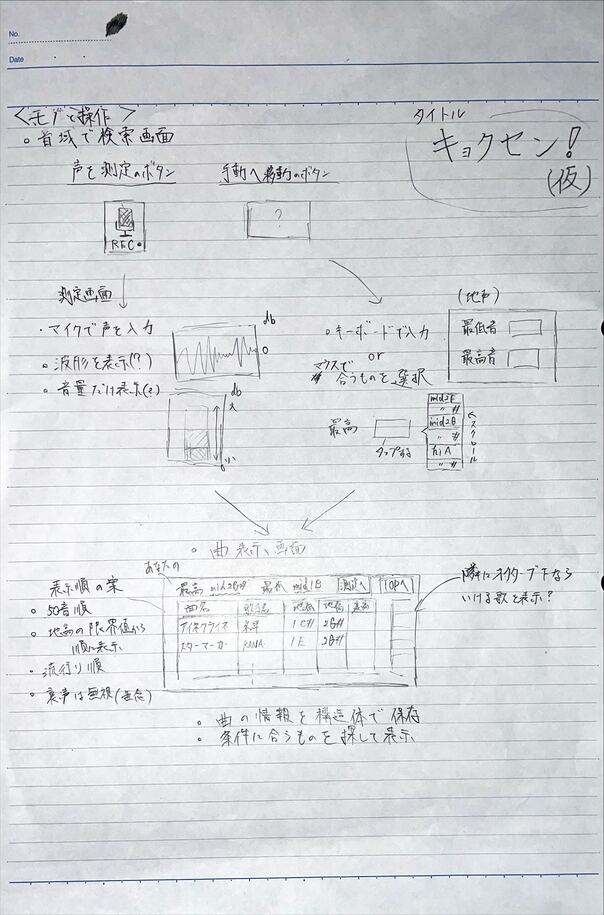 No.
Date
<モブと操作>
タイトル
キョクセン!
(仮)
。音域で検索画面
声を測定のボタン
手動へ移動のボタン
REC
?
測定画面
・マイクで声を入力
。波形を表示(?)
。音量だけ表示(?)
db
0
db
大
小
(地声)
最低音
最高音
。キーボードで入力
or
マウスで
合うものを選択
最高
タップする
mid2F
〃 #
mid2G
〃 #
hiA
〃 #
スクロール
。曲表示画面
あなたの
最高 mid2G# 最低 mid1B 測定へ TOPへ
曲名 歌手名 地低 地高 裏高
アイネクライネ 米津 1C# 2G#
スターマーカー KANA 1E 2G#
表示順の案
。50音順
。地高の限界値から
順に表示
。流行り順
。裏声は無視(断念)
隣に1オクターブ下なら
いける歌を表示?
。曲の情報を構造体で保存
。条件に合うものを探して表示